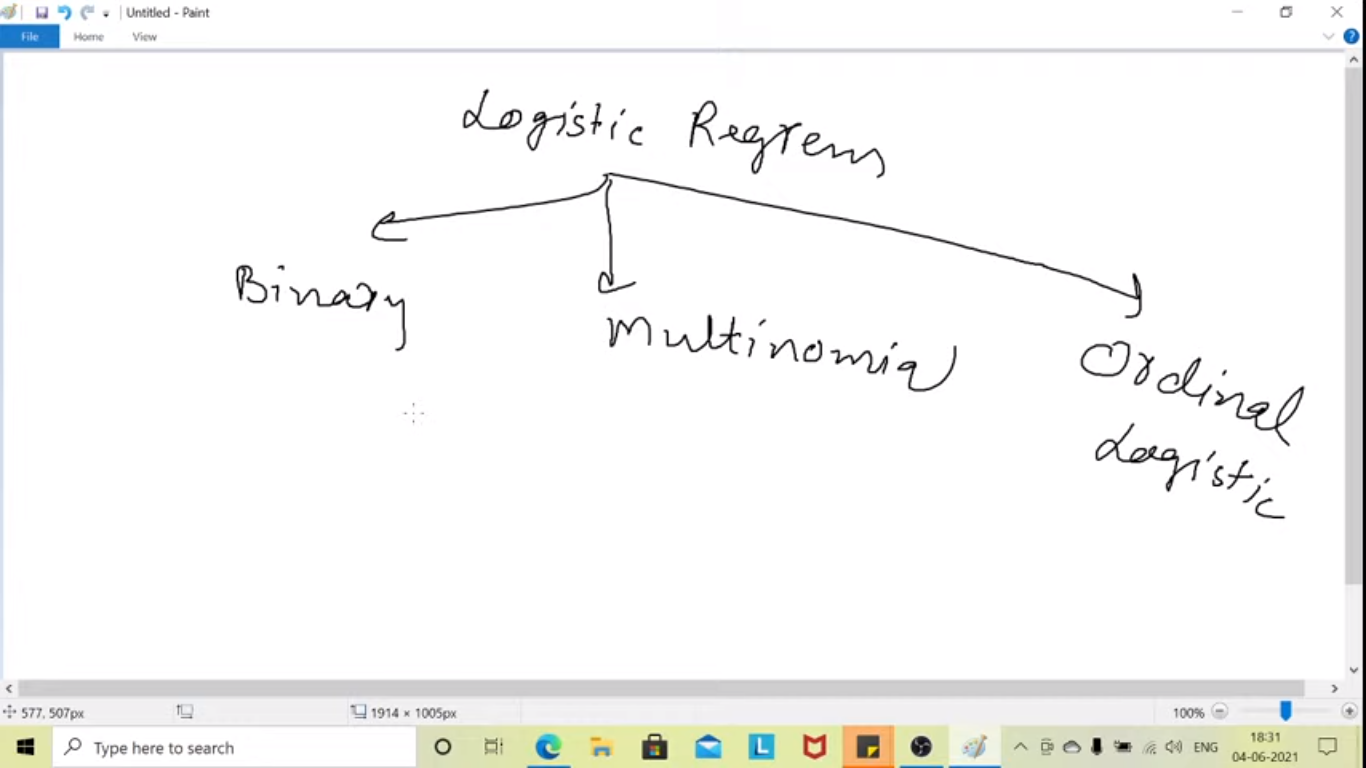 Untitled - Paint
File Home View
Logistic Regress
Binary
Multinomial
Ordinal
Logistic
577, 507px
1914 × 1005px
100%
Type here to search
ENG
18:31
04-06-2021